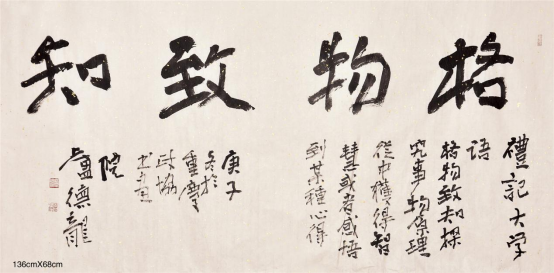 格物致知
禮記大学
语
格物致知探
究事物原理
從中獲得智
慧或者感悟
到某種心得
庚子
冬於
重慶
政協
书画
院
盧德龍
136cmX68cm